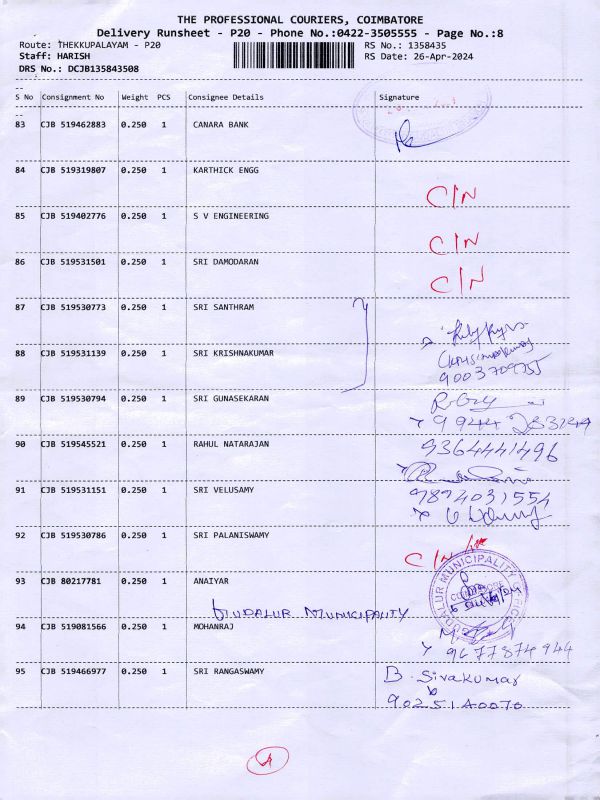 THE PROFESSIONAL COURIERS, COIMBATORE
Delivery Runsheet - P20 - Phone No.:0422-3505555 - Page No.:8
Route: THEKKUPALAYAM - P20 RS No.: 1358435
Staff: HARISH RS Date: 26-Apr-2024
DRS No.: DCJB135843508
S No Consignment No Weight PCS Consignee Details Signature
83 CJB 519462883 0.250 1 CANARA BANK
84 CJB 519319807 0.250 1 KARTHICK ENGG
C/N
85 CJB 519402776 0.250 1 S V ENGINEERING
C/N
86 CJB 519531501 0.250 1 SRI DAMODARAN
C/N
87 CJB 519530773 0.250 1 SRI SANTHRAM
88 CJB 519531139 0.250 1 SRI KRISHNAKUMAR
9003709755
89 CJB 519530794 0.250 1 SRI GUNASEKARAN
90 CJB 519545521 0.250 1 RAHUL NATARAJAN
9364441496
91 CJB 519531151 0.250 1 SRI VELUSAMY
9894031554
92 CJB 519530786 0.250 1 SRI PALANISWAMY
C/N
93 CJB 80217781 0.250 1 ANAIYAR
GUDALUR MUNICIPALITY
94 CJB 519081566 0.250 1 MOHANRAJ
9677874944
95 CJB 519466977 0.250 1 SRI RANGASWAMY
B. Sivakumar
9025140070